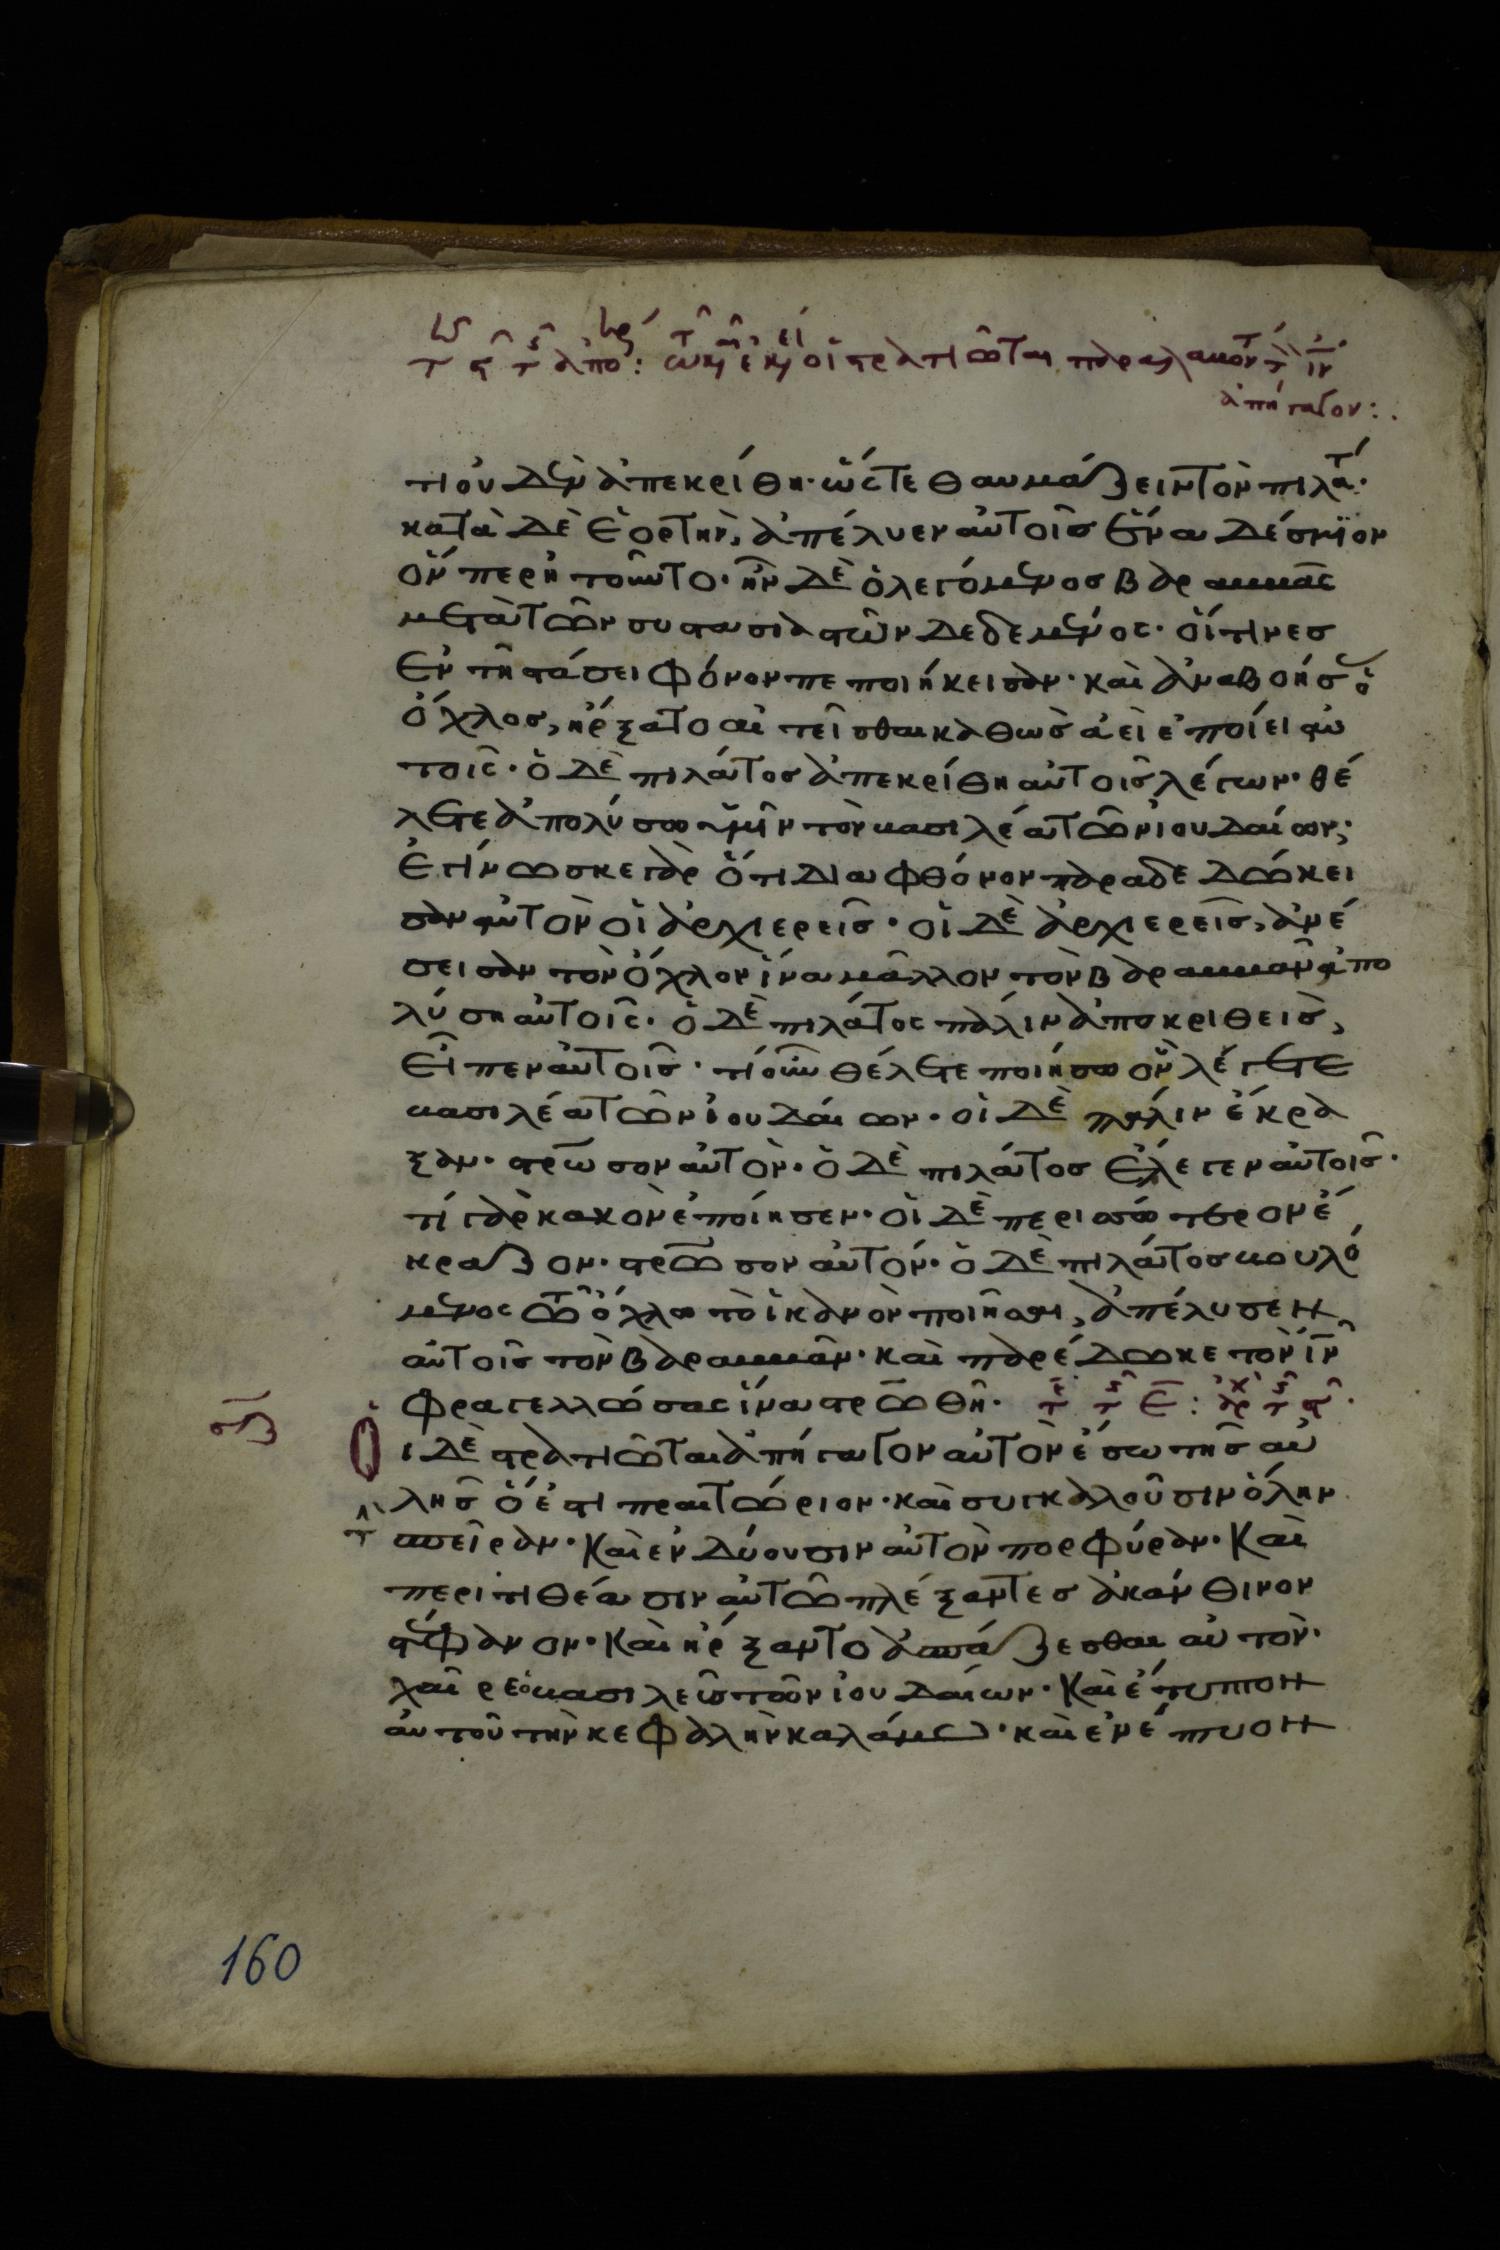 τῶ καιρῶ ἐκείνω οἱ στρατιῶται παραλαβόντες τὸν ἰν
ἀπήγαγον:
τι οὐδὲν ἀπεκρίθη· ὥστε θαυμάζειν τὸν πιλάτ·
κατὰ δὲ ἑορτὴν, ἀπέλυεν αὐτοῖς ἕνα δέσμϊον
ὅν περ ἠτοῦντο· ἦν δὲ ὁ λεγόμενος βαραββᾶς
μετὰ τῶν συστασιαστῶν δεδεμένος· οἵτινες
ἐν τῆ στάσει φόνον πεποιήκεισαν· καὶ ἀναβοήσας ὁ
ὄχλος, ἤρξατο αἰτεῖσθαι καθὼς ἀεὶ ἐποίει αὐ
τοῖς· ὁ δὲ πιλάτος ἀπεκρίθη αὐτοῖς λέγων· θέ
λετε ἀπολύσω ὑμῖν τὸν βασιλέα τῶν ιουδαίων;
ἐγίνωσκε γὰρ ὅτι δια φθόνον παραδεδώκει
σαν αὐτὸν οἱ ἀρχιερεῖς· οἱ δὲ ἀρχιερεῖς, ἀνέ
σεισαν τὸν ὄχλον ἵνα μᾶλλον τὸν βαραββᾶν ἀπο
λύση αὐτοῖς· ὁ δὲ πιλάτος πάλιν ἀποκριθεὶς,
εἶπεν αὐτοῖς· τί οὖν θέλετε ποιήσω ὃν λέγετε
βασιλέα τῶν ἰουδαίων· οἱ δὲ πάλιν ἔκρα
ξαν· στρωσον αὐτὸν· ὁ δὲ πιλάτος ἔλεγεν αὐτοῖς·
τί γὰρ κακὸν ἐποίησεν· οἱ δὲ περισσωτέρον ἔ
κραζον· στρωσον αὐτόν· ὁ δὲ πιλάτος βουλό
μενος τῶ ὄχλω τὸ ἱκανὸν ποιῆσαι, ἀπέλυσεν
αὐτοῖς τὸν βαραββᾶν· καὶ παρέδωκε τὸν ἰν
φραγελλώσας ἵνα στρωθῆ·
οι δὲ στρατιῶται ἀπήγαγον αὐτὸν ἔσω τῆς αὐ
λῆς ὅ ἐστι πραιτώριον· καὶ συγκαλοῦσιν ὅλην
σπεῖραν· Καὶ ενδύουσιν αὐτὸν πορφύραν· Καὶ
περιτιθέασιν αὐτῶ πλέξαντες ἀκάνθινον
στέφανον· Καὶ ἤρξαντο ἀσπάζεσθαι αὐτὸν·
χαῖρε ὁ βασιλεῦς τῶν ἰουδαίων· Καὶ ἔτυπτον
αὐτοῦ τὴν κεφαλὴν καλάμω· καὶ ἐνέπτυον
160